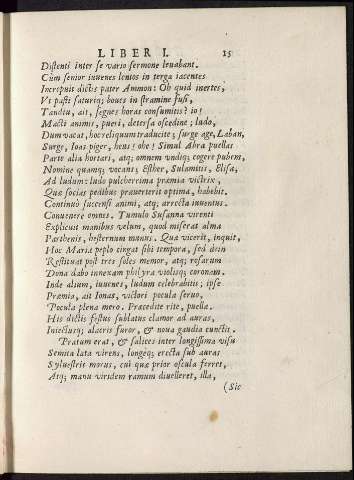 LIBER I. 15
Distenti inter se vario sermone leuabant.
Cùm senior iuuenes lentos in terga iacentes
Increpuit dictis pater Ammon: Oh quid inertes,
Vt pasti saturiq; boues in stramine fusi,
Tandiu, ait, segnes horas consumitis? io!
Macti animis, pueri, detersa oscedine, ludo,
Dum vacat, hoc reliquum traducite; surge age, Laban,
Surge, Ioas piger, heus! oho! Simul Abra puellas
Parte alia hortari, atq; omnem vndiq; cogere pubem,
Nomine quamq; vocans; Esther, Sulamitis, Elisa;
Ad ludum: ludo pulcherrima præmia victrix,
Quæ socias pedibus præuerterit optima, habebit.
Continuò succensi animi, atq; arrecta iuuentus.
Conuenere omnes. Tumulo Susanna virenti
Explicuit manibus velum, quod miserat alma
Parthenis, hesternum munus. Quæ vicerit, inquit,
Hoc Maria peplo cingat sibi tempora, sed dein
Restituat post tres soles memor, atq; rosarum
Dona dabo innexam philyra violisq; coronam.
Inde alium, iuuenes, ludum celebrabitis; ipse
Præmia, ait Ionas, victori pocula seruo,
Pocula plena mero. Præcedite rite, puellæ.
His dictis festus sublatus clamor ad auras,
Iniectusq; alacris furor, & noua gaudia cunctis.
Pratum erat, & salices inter longissima visu
Semita lata virens, longéq; erecta sub auras
Syluestris morus, cui quæ prior oscula ferret,
Atq; manu viridem ramum diuelleret, illa,
(Sic